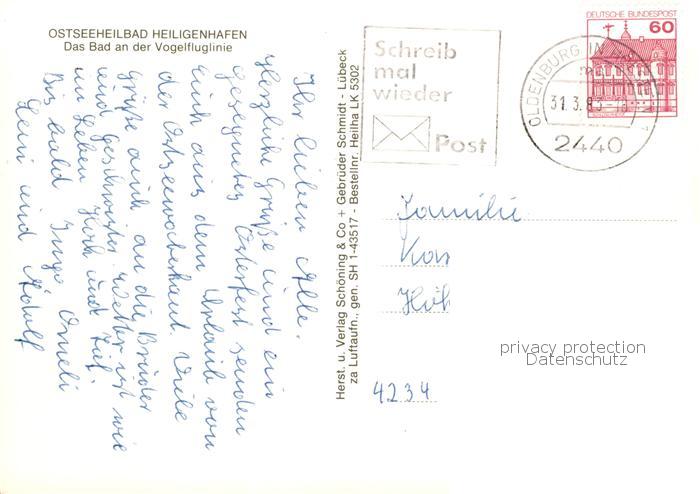 OSTSEEHEILBAD HEILIGENHAFEN
Das Bad an der Vogelfluglinie
Ihr lieben Alle.
Herzliche Grüße und ein
gesegnetes Osterfest senden
euch aus dem Urlaub von
der Ostsee Viele
Grüße auch an die Brüder
und Geschwister, Wetter ist wie
im Leben Hoch und Tief.
Bis bald Ingo
und Adolf
Herst. u. Verlag Schöning & Co + Gebrüder Schmidt - Lübeck
za Luftaufn., gen. SH 1-43517 - Bestellnr. Heilha LK 5302
Schreib
mal
wieder
Post
DEUTSCHE BUNDESPOST
60
OLDENBURG IN
31.3.83
2440
Familie
Kar
Höh
4234
privacy protection
Datenschutz